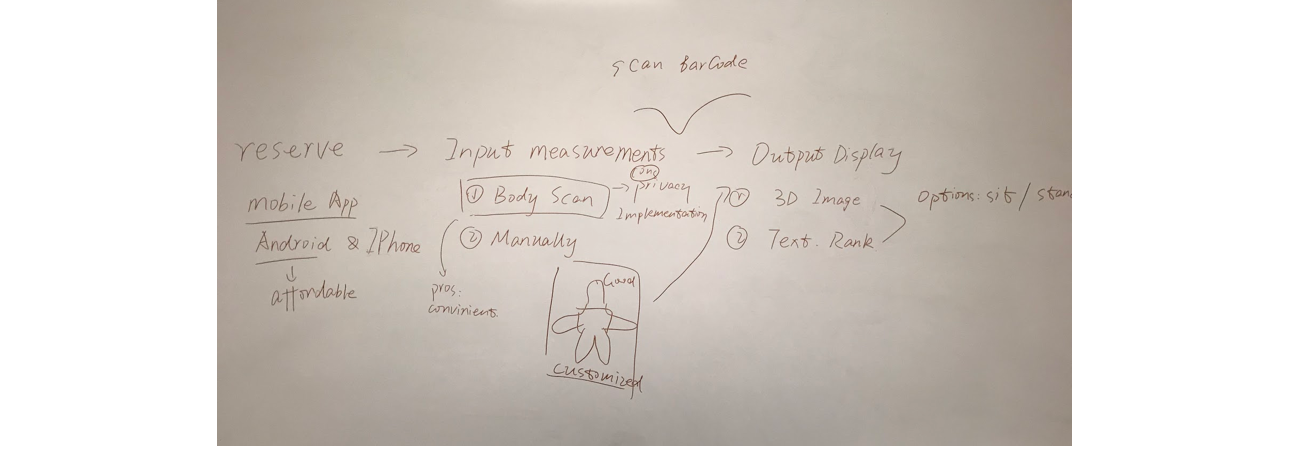 scan barCode
reserve → Input measurements → Output Display
mobile App
Android & IPhone
↓
affordable
① Body Scan → privacy
Implementation
② Manually
pros:
convinient
Good
customized
① 3D Image
② Text. Rank
Options: sit / stan